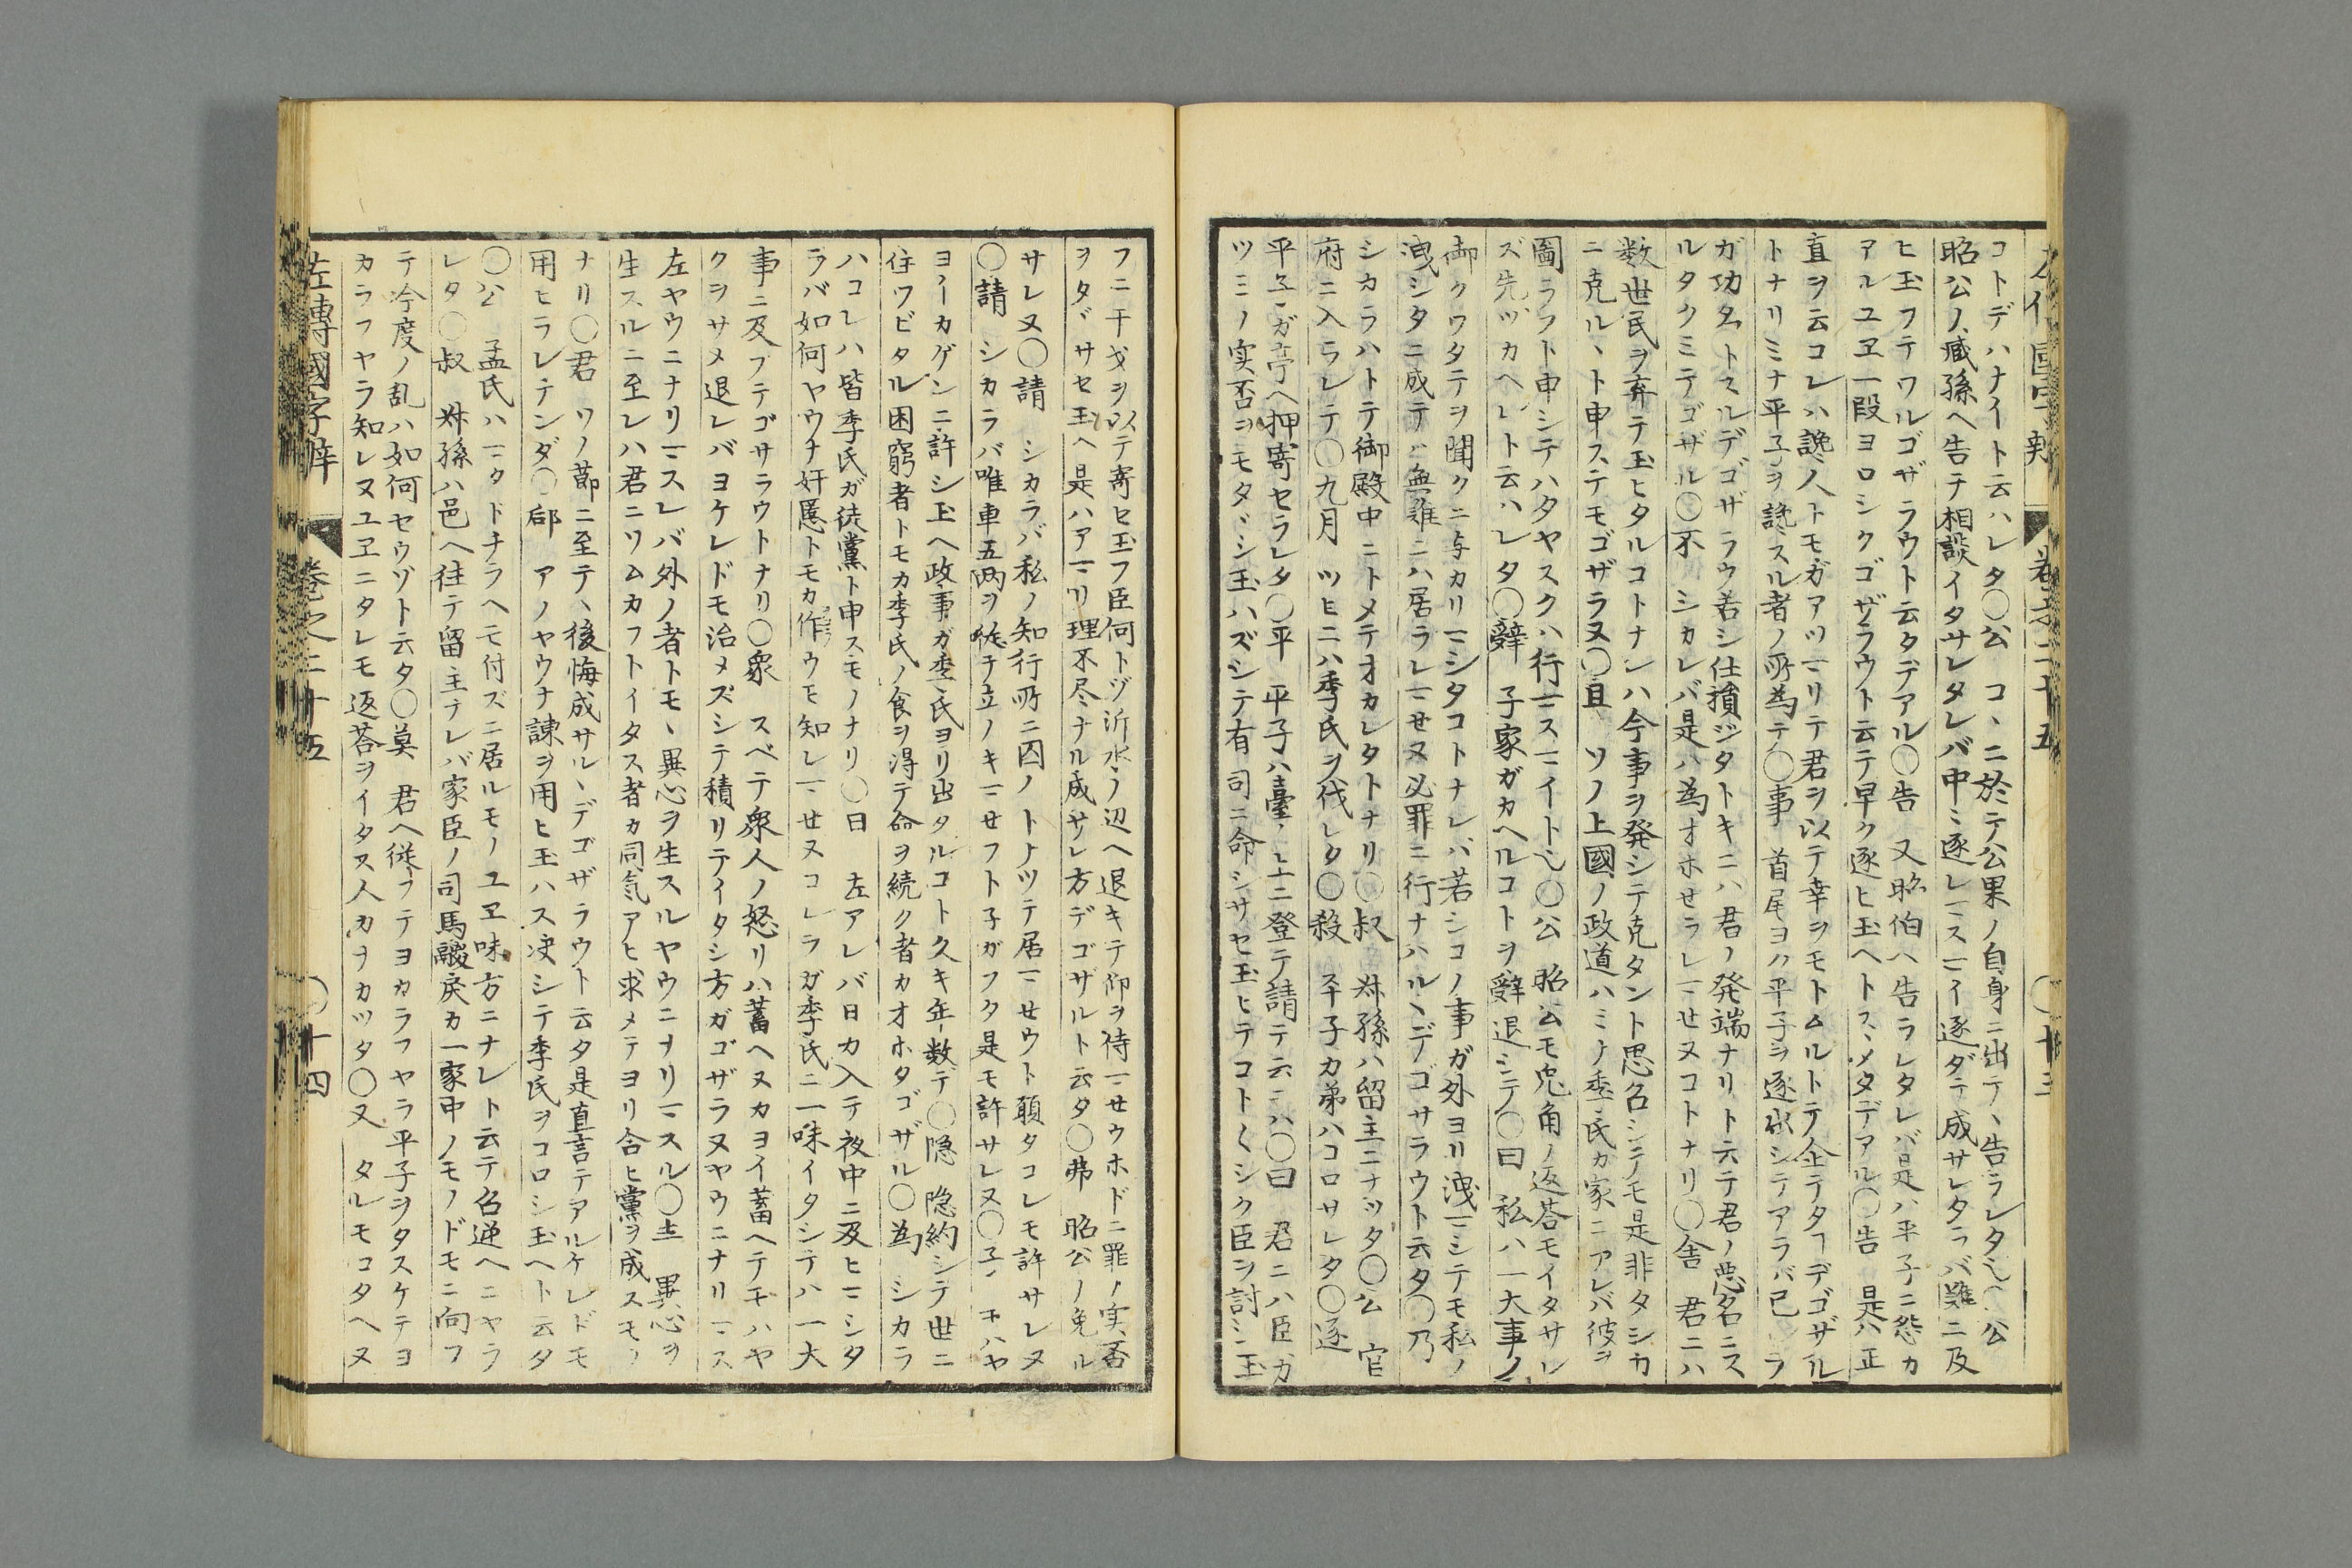 コトデハナイト云ハレタ○公　コヽニ於テ公果ノ自身ニ出テヽ告ラレタ○公
昭公ノ臧孫ヘ告テ相談イタサレタレバ中〻逐レマスマイ逐ダテ成サレタラバ難ニ及
ヒ玉フテワルゴザラウト云タデアル○告　又郈伯ハ告ラレタレバ是ハ平子ニ怨カ
アルユヱ一段ヨロシクゴザラウト云テ早ク逐ヒ玉ヘトスヽメタデアル○告　是ハ正
直ヲ云コレハ讒人トモガアツマリテ君ヲ以テ幸ヲモトムルトテ企テタヿデゴザル
トナリミナ平子ヲ讒スル者ノ所為テ○事　首尾ヨク平子ヲ逐出シテアラバ己レラ
ガ功名トスルデゴザラウ若シ仕損ジタトキニハ君ノ発端ナリト云テ君ノ悪名ニス
ルタクミテゴザル○不　シカレバ是ハ為オホセラレマセヌコトナリ○舎　君ニハ
数世民ヲ弃テ玉ヒタルコトナレハ今事ヲ発シテ克タント思召シテモ是非タシカ
ニ克ルヽト申ステモゴザラヌ○且　ソノ上國ノ政道ハミナ季氏カ家ニアレバ彼ヲ
圖ラフト申シテハタヤスクハ行マスマイト也○公　昭公モ兎角ノ返荅モイタサレ
ズ先ツカヘレト云ハレタ○辭　子家ガカヘルコトヲ辭退シテ○曰　私ハ一大事ノ
御クワタテヲ聞クニ与カリマシタコトナレバ若シコノ事ガ外ヨリ洩マシテモ私ノ
洩シタニ成テハ無難ニハ居ラレマセヌ必罪ニ行ナハルヽデゴサラウト云タ○乃
シカラハトテ御殿中ニトメテオカレタトナリ○叔　叔孫ハ留主ニナツタ○公　官
府ニ入ラレテ○九月　ツヒニハ季氏ヲ伐レタ○殺　平子カ弟ハコロサレタ○遂
平子ガ亭ヘ押寄セラレタ○平　平子ハ臺ノ上ニ登テ請テ云ニハ○曰　君ニハ臣ガ
ツミノ実否ヲモタヾシ玉ハズシテ有司ニ命シサセ玉ヒテコト〱シク臣ヲ討シ玉
フニ干戈ヲ以テ寄セ玉フ臣何トゾ沂水ノ辺ヘ退キテ仰ヲ待マセウホドニ罪ノ実否
ヲタヾサセ玉ヘ是ハアマリ理不尽ナル成サレ方デゴザルト云タ○弗　昭公ノ免ル
サレヌ○請　シカラバ私ノ知行所ニ囚ノトナツテ居マセウト願タコレモ許サレヌ
○請　シカラバ唯車五両ヲ従テ立ノキマセフト子ガフタ是モ許サレヌ○子　モハヤ
ヨイカゲンニ許シ玉ヘ政事ガ季氏ヨリ出タルコト久キ年数テ○隠　隠約シテ世ニ
住ワビタル困窮者トモカ季氏ノ食ヲ得テ命ヲ続ク者カオホタゴザル○為　シカラ
ハコレハ皆季氏ガ徒黨ト申スモノナリ○日　左アレバ日カ入テ夜中ニ及ヒマシタ
ラバ如何ヤウナ奸慝トモカ作ウモ知レマセヌコレラガ季氏ニ一味イタシテハ一大
事ニ及フテゴサラウトナリ○衆　スベテ衆人ノ怒リハ蓄ヘヌカヨイ蓄ヘテモハヤ
クヲサメ退レバヨケレドモ治メズシテ積リテイタシ方ガゴザラヌヤウニナリマス
左ヤウニナリマスレバ外ノ者トモヽ異心ヲ生スルヤウニナリマスル○生　異心ヲ
生スルニ至レハ君ニソムカフトイタス者カ同気アヒ求メテヨリ合ヒ黨ヲ成スモノ
ナリ○君　ソノ節ニ至テ後悔成サルヽデゴザラウト云タ是直言テアルケレドモ
用ヒラレテンダ○郈　アノヤウナ諌ヲ用ヒ玉ハス決シテ季氏ヲコロシ玉ヘト云タ
○公　孟氏ハマタドチラヘモ付ズニ居ルモノユヱ味方ニナレト云テ召逆ヘニヤラ
レタ○叔　叔孫ハ邑ヘ往テ留主ナレバ家臣ノ司馬鬷戾カ一家中ノモノドモニ向フ
テ今度ノ乱ハ如何セウゾト云タ○莫　君ヘ従フテヨカラフヤラ平子ヲタスケテヨ
カラフヤラ知レヌユヱニタレモ返荅ヲイタス人カナカツタ○又　タルモコタヘヌ
左傳國字辯　巻之二十五　○十四